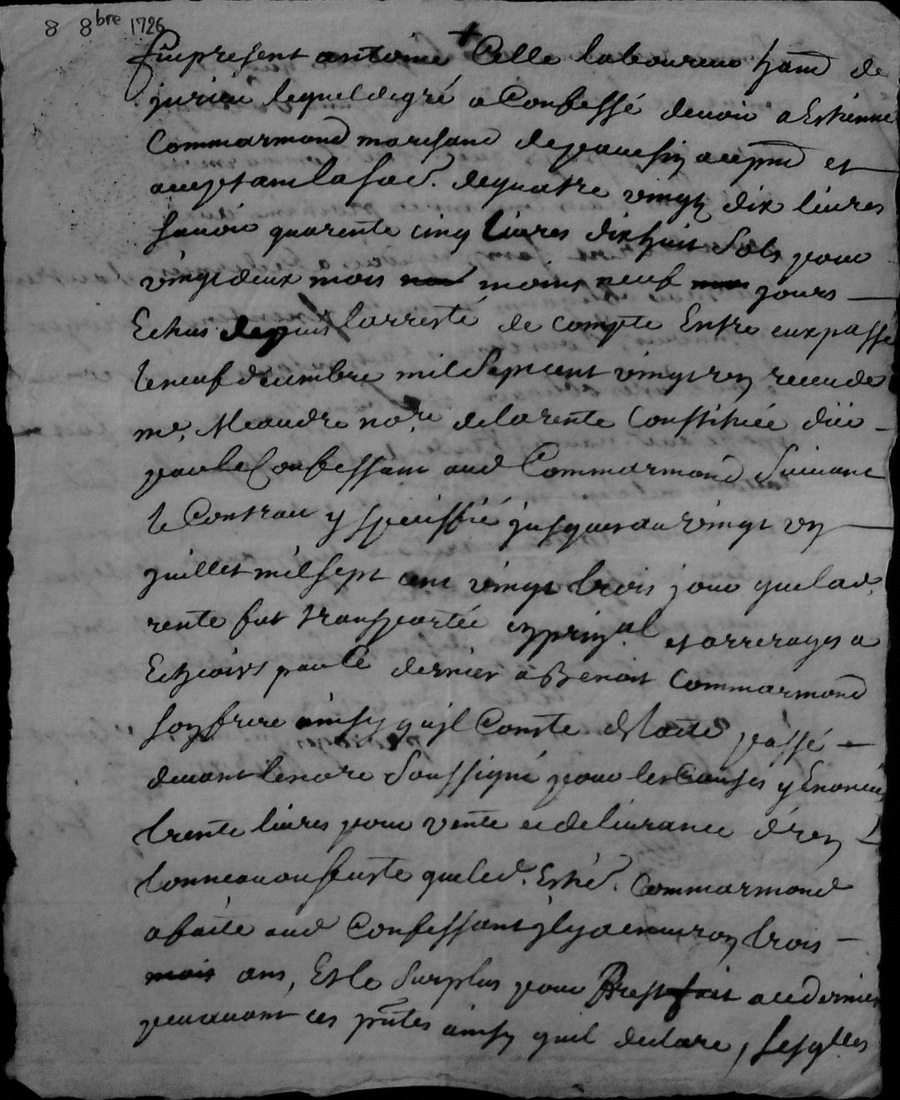 8 8bre 1726
+
fut present antoine Celle laboureur hant de
jurieu lequel de gré a Confessé devoir a Estienne
Commarmond marchand de pnt et
acceptant la so. de quatre vingt dix livres
savoir quarente cinq livres dix huit sols pour
vingt deux mois moins neuf jours
Echus depuis l'arresté de compte Entre eux passé
le neuf decembre mil sept cent vingt un receu de
me. Meaudre nore. de la rente Constituée düe
par le Confessant aud Commarmond suivant
le Contrat y speciffié jusques au vingt un
juillet mil sept cent vingt trois jour que lad.
rente fut transportée en prinpal et arrerages a
Echeoirs par le dernier a Benoit Commarmond
son frere ainsy qu'il Conste d'acte passé
devant le nore soussigné pour les Causes y Enoncées
trente livres pour vente et delivrance d'un
tonneau ou fuste que led. Este. Commarmond
a faite aud Confessant il y a environ trois
mois ans, Et le surplus pour Prest fait aud dernier
par avant ces pntes ainsy qu'il declare, lesqlles